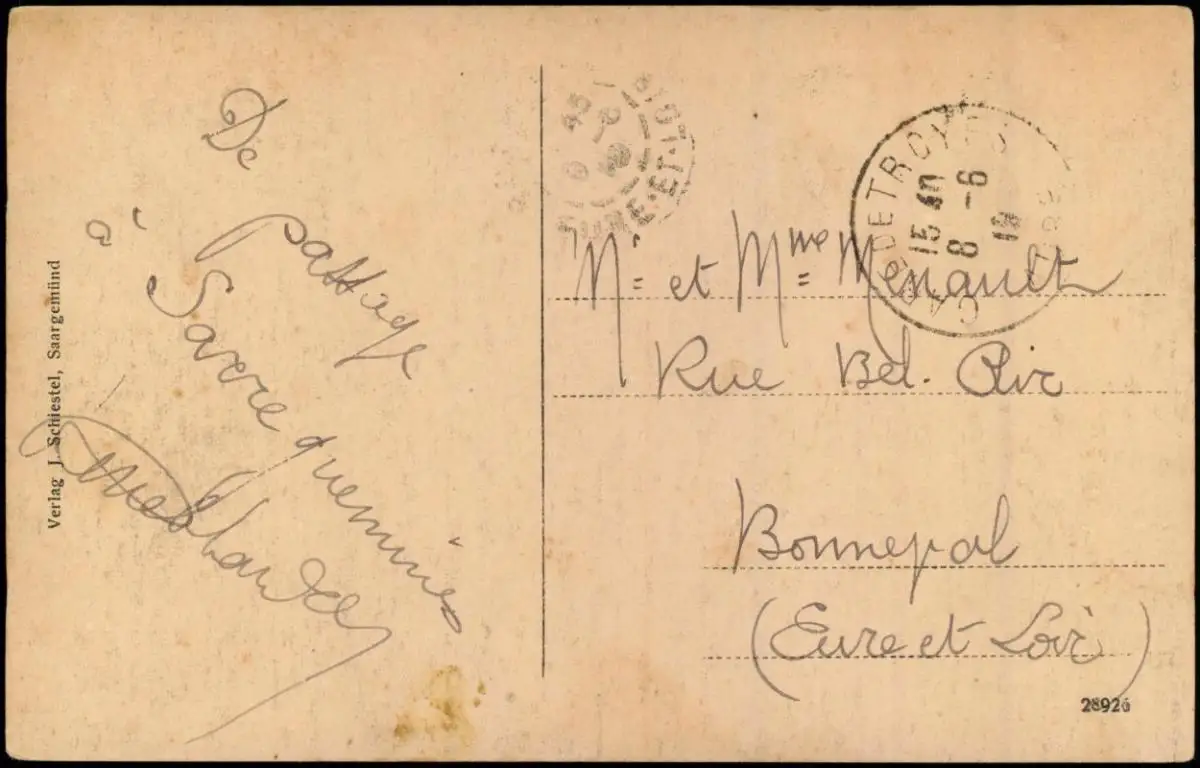 De
passage
à Sarreguemines
Verlag J. Schiestel, Saargemünd
EURE-ET-LOIR
15 40
8 - 6
19
Mr et Mme Menault
Rue Bel. Air
Bonneval
(Eure et Loir)
28926